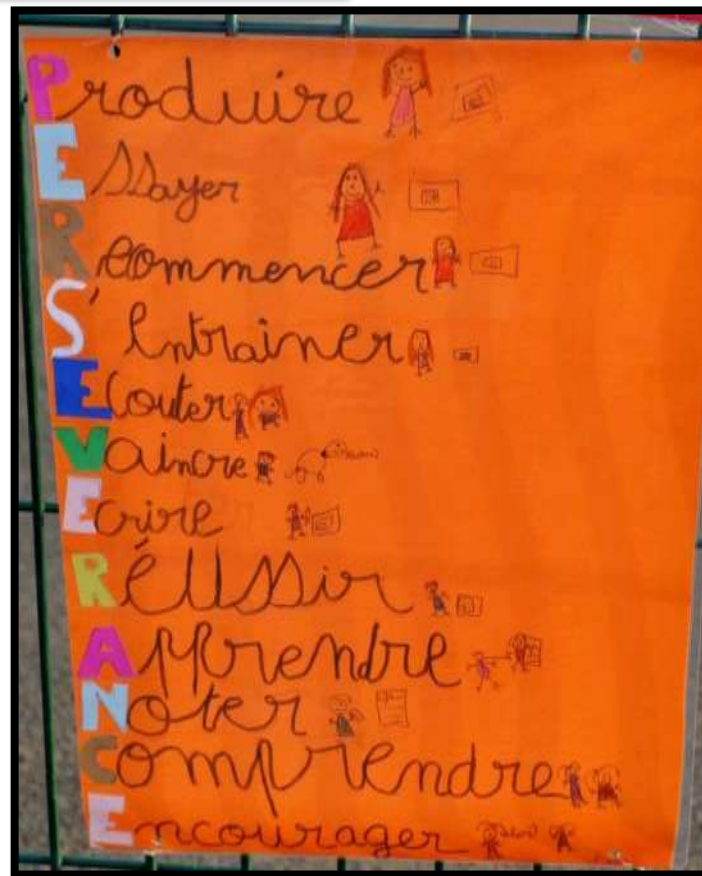 Produire
Essayer
Recommencer
S'Entrainer
Ecouter
Vaincre
Ecrire
Réussir
Apprendre
Noter
Comprendre
Encourager